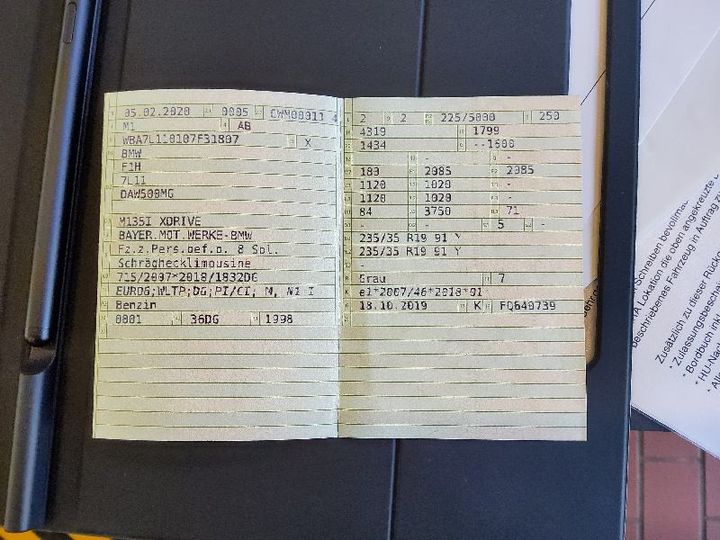 05.02.2020 0005 CWM00011 4
M1 AB
WBA7L110107F31807 X
BMW
F1H
7L11
DAW500MG
M135I XDRIVE
BAYER.MOT.WERKE-BMW
Fz.z.Pers.bef.b. 8 Spl.
Schräghecklimousine
715/2007*2018/1832DG
EURO6;WLTP;DG;PI/CI; M, N1 I
Benzin
0001 36DG 1998
2 2 225/5000 250
4319 1799
1434 --1600
- -
180 2085 2085
1120 1020 -
1120 1020 -
84 3750 71
- - 5 -
235/35 R19 91 Y
235/35 R19 91 Y
-
Grau 7
e1*2007/46*2018*01
18.10.2019 K FQ640739
Schreiben bevollmä
TA Lokation die oben angekreuzte
beschriebenes Fahrzeug in Auftrag z
Zusätzlich zu dieser Rück
* Zulassungsbesche
* Bordbuch ink
* HU-Nac